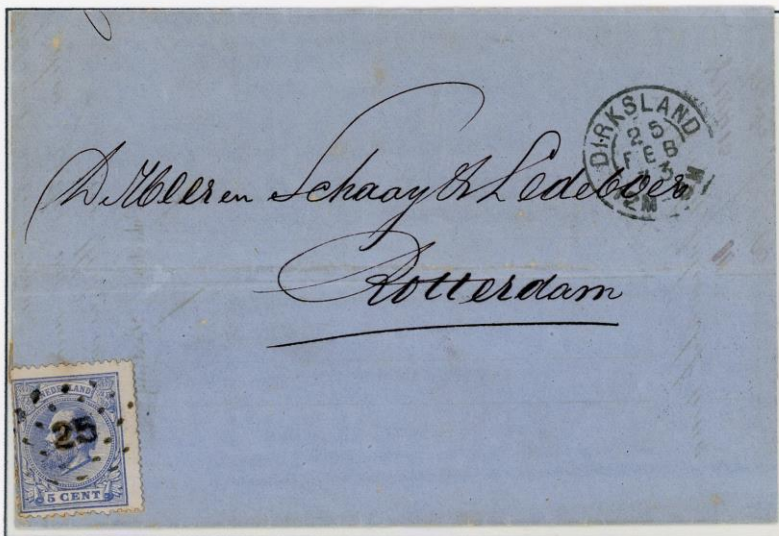 DIRKSLAND
25
FEB
12M - 8M
De Heeren Schaay & Ledeboer
Rotterdam
NEDERLAND
25
5 CENT